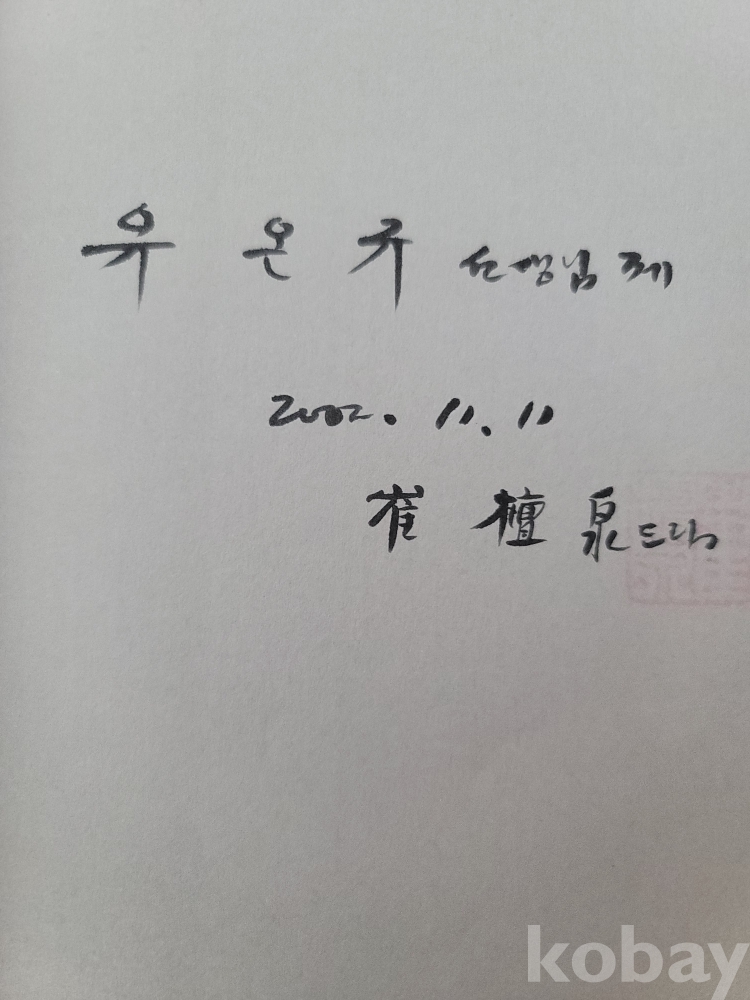 유온규 선생님께
2002. 11. 11
崔檀泉 드림
kobay